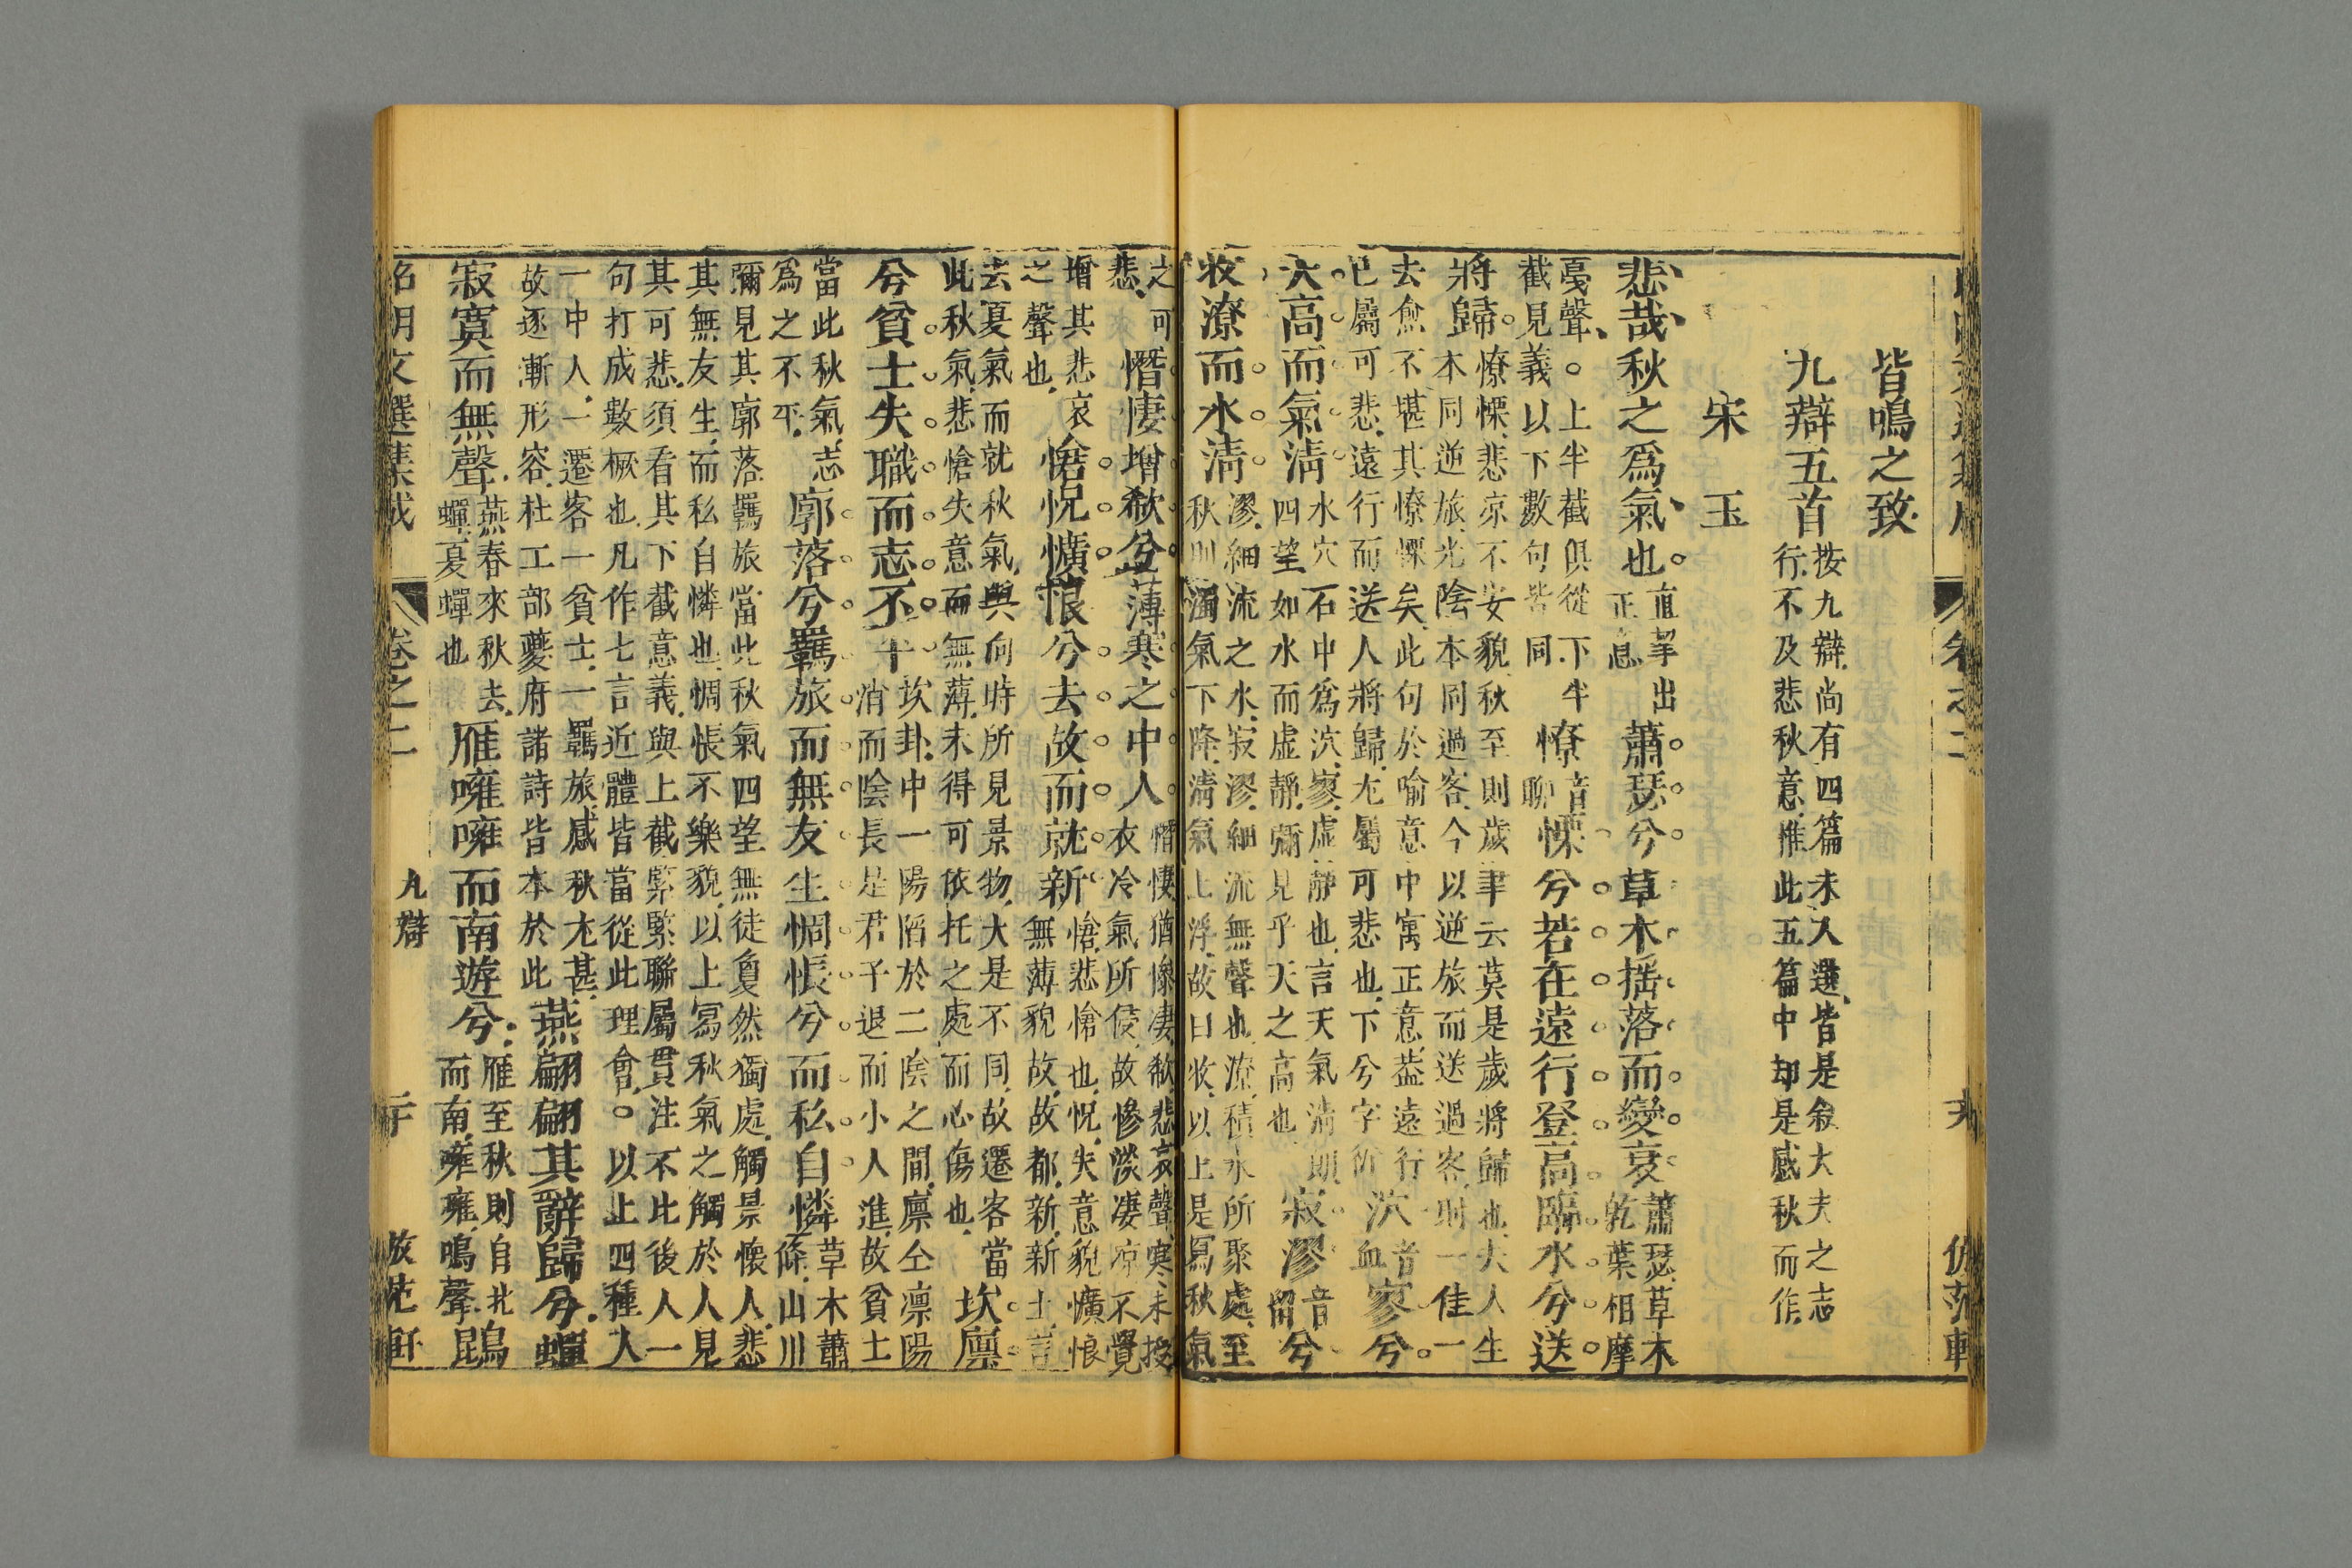 皆鳴之致
九辯五首 按九辯尚有四篇未入選皆是叙大夫之志
行不及悲秋意惟此五篇中却是感秋而作
宋玉
悲哉秋之爲氣也 直拏出正意 蕭瑟兮草木搖落而變衰 蕭瑟草木乾葉相摩
戛聲。上半截俱從下半截見義以下數句皆同 憭音聊慄兮若在遠行登高臨水兮送
將歸 憭慄悲凉不安貌秋至則歲聿云莫是歲將歸也夫人生本同逆旅光陰本同過客今以逆旅而送過客則一佳一
去愈不堪其憭慄矣此句於喻意中寓正意葢遠行已屬可悲遠行而送人將歸尢屬可悲也下兮字倣 泬音血寥兮
天高而氣淸 水穴石中爲泬寥虛靜也言天氣淸朗四望如水而虛靜彌見乎天之高也 寂漻音留兮
收潦而水淸 漻細流之水寂漻細流無聲也潦積水所聚處至秋則濁氣下降淸氣上浮故曰收以上是冩秋氣
之可悲 憯悽增欷兮薄寒之中人 憯悽猶慘凄欷悲哀聲寒未授衣冷氣所侵故慘淡凄凉不覺
增其悲哀之聲也 愴怳懭悢兮去故而就新 愴悲愴也怳失意貌懭悢無薄貌故故都新新土言
去夏氣而就秋氣與向時所見景物大是不同故遷客當此秋氣悲愴失意而無薄未得可依托之處而心傷也 坎廩
兮貧士失職而志不平 坎卦中一陽陷於二陰之間廪仝凛陽消而陰長是君子退而小人進故貧士
當此秋氣志爲之不平 廓落兮羈旅而無友生惆悵兮而私自憐 草木蕭條山川
彌見其廓落羈旅當此秋氣四望無徒㷀然獨處觸景懷人悲其無友生而私自憐也惆悵不樂貌以上冩秋氣之觸於人見
其可悲須看其下截意義與上截緊緊聯屬貫注不比後人一句打成數橛也凡作七言近體皆當從此理會。以止四種人
一中人一遷客一貧士一羈旅感秋尢甚故逐漸形容杜工部夔府諸詩皆本於此 燕翩翩其辭歸兮蟬
寂寞而無聲 燕春來秋去蟬夏蟬也 雁嗈嗈而南遊兮 雁至秋則自北而南嗈嗈鳴聲 鵾
昭明文選集成 卷之二 九辯 二十 倣范軒
卷之二 倣范軒